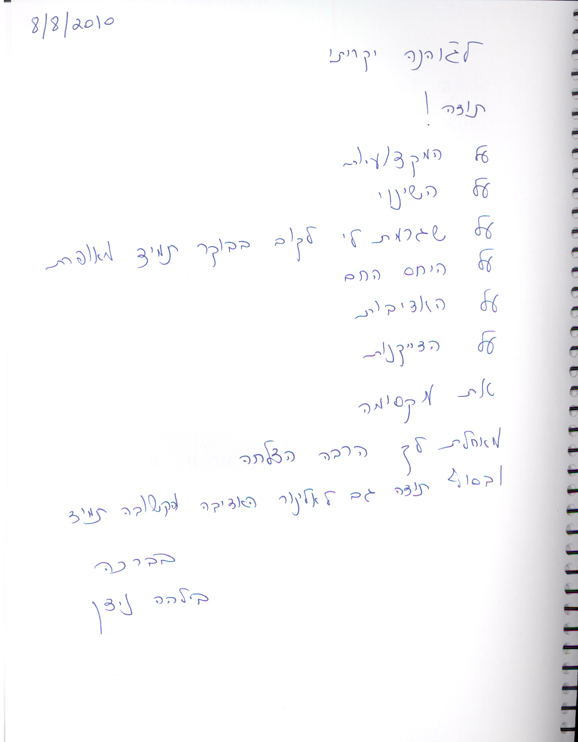 8/8/2010
לג'והנה יקירתי
תודה!
על המקצועיות
על השינוי
על שגרמת לי לקום בבוקר תמיד מאופרת
על היחס החם
על האדיבות
על הדייקנות
את מקסימה
מאחלת לך הרבה הצלחה
ובסוף תודה גם לאלינור האדיבה הקשובה תמיד
בברכה
בילהה ניצן